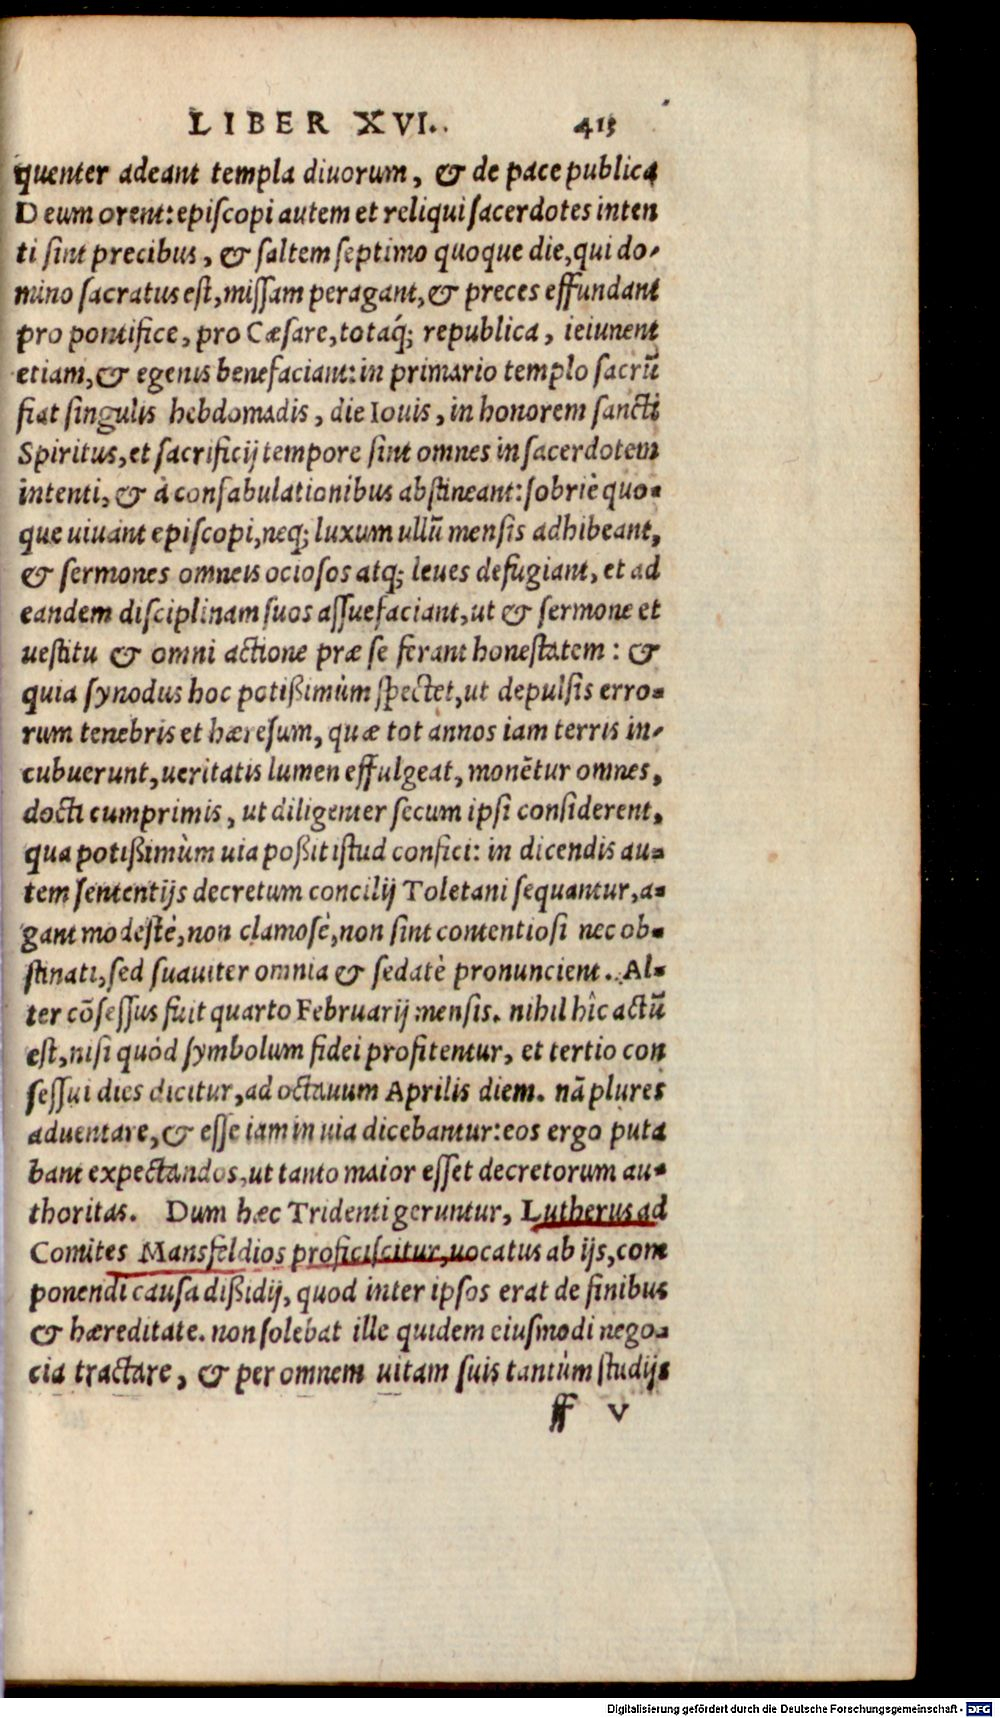 LIBER XVI. 413
quenter adeant templa diuorum, & de pace publica
Deum orent: episcopi autem et reliqui sacerdotes inten
ti sint precibus, & saltem septimo quoque die, qui do-
mino sacratus est, missam peragant, & preces effundant
pro pontifice, pro Cæsare, totaq́; republica, ieiunent
etiam, & egenis benefaciant: in primario templo sacrũ
fiat singulis hebdomadis, die Iouis, in honorem sancti
Spiritus, et sacrificij tempore sint omnes in sacerdotem
intenti, & à confabulationibus abstineant: sobriè quo-
que uiuant episcopi, neq; luxum ullũ mensis adhibeant,
& sermones omneis ociosos atq; leues defugiant, et ad
eandem disciplinam suos assuefaciant, ut & sermone et
uestitu & omni actione præ se ferant honestatem: &
quia synodus hoc potißimùm spectet, ut depulsis erro-
rum tenebris et hæresum, quæ tot annos iam terris in-
cubuerunt, ueritatis lumen effulgeat, monẽtur omnes,
docti cumprimis, ut diligenter secum ipsi considerent,
qua potißimùm uia poßit istud confici: in dicendis au-
tem sententijs decretum concilij Toletani sequantur, a-
gant modestè, non clamosè, non sint contentiosi nec ob-
stinati, sed suauiter omnia & sedatè pronuncient. Al-
ter cõsessus fuit quarto Februarij mensis. nihil hîc actũ
est, nisi quòd symbolum fidei profitentur, et tertio con
sessui dies dicitur, ad octauum Aprilis diem. nã plures
aduentare, & esse iam in uia dicebantur: eos ergo puta
bant expectandos, ut tanto maior esset decretorum au-
thoritas. Dum hæc Tridenti geruntur, Lutherus ad
Comites Mansfeldios proficiscitur, uocatus ab ijs, com
ponendi causa dißidij, quod inter ipsos erat de finibus
& hæreditate. non solebat ille quidem eiusmodi nego-
cia tractare, & per omnem uitam suis tantùm studijs
ff v
Digitalisierung gefördert durch die Deutsche Forschungsgemeinschaft - DFG